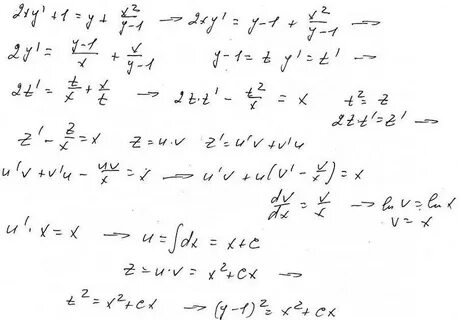 2xy' + 1 = y + x²/(y-1) → 2xy' = y-1 + x²/(y-1) →
2y' = (y-1)/x + x/(y-1)   y-1 = t   y' = t' →
2t' = t/x + x/t → 2t·t' - t²/x = x   t² = z
2t·t' = z' →
z' - z/x = x   z = u·v   z' = u'v + v'u
u'v + v'u - uv/x = x → u'v + u(v' - v/x) = x
dv/dx = v/x → ln v = ln x
v = x
u'·x = x → u = ∫dx = x + c
z = u·v = x² + cx →
t² = x² + cx → (y-1)² = x² + cx